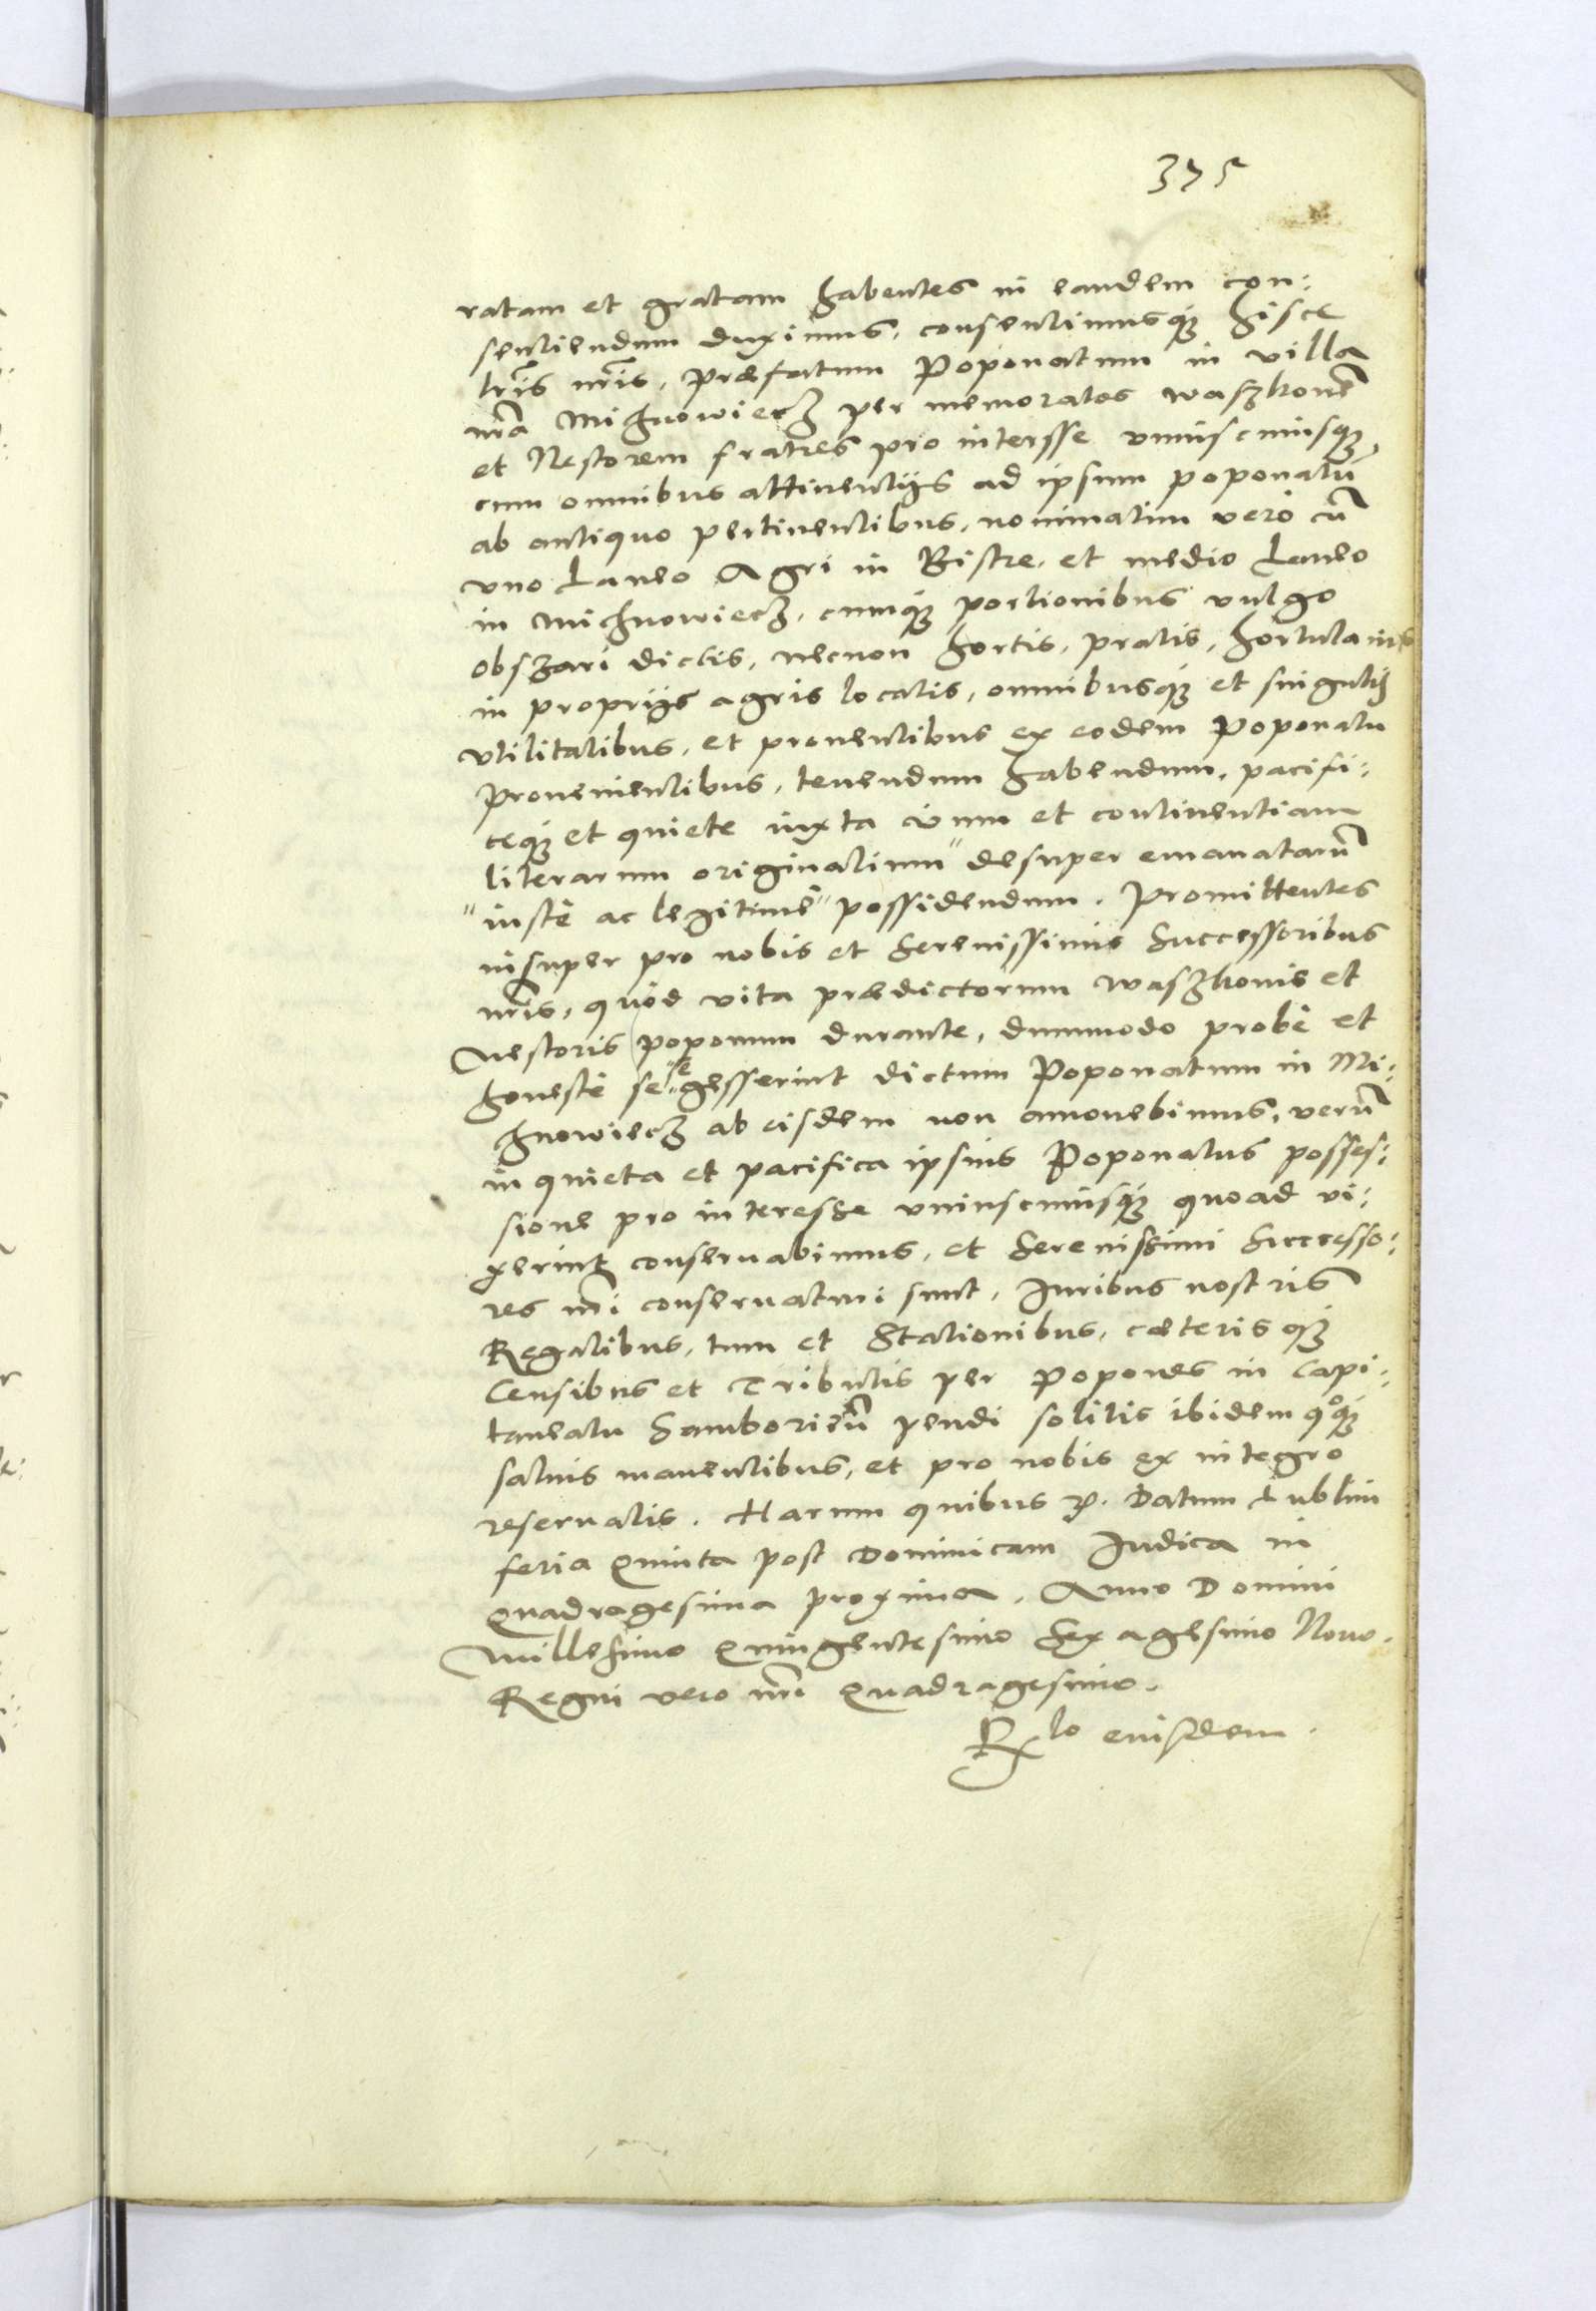 375
ratam et gratam habentes in eandem con:
sentiendum duximus, consentimusq́ hisce
lr̃is nr̃is, Præfatum Poponatum in villa
nr̃a Michnowiecz per memoratos waszkonẽ
et Nestorem fratres pro intersse vniuscuiusq́,
cum omnibus attinentijs ad ipsum poponatũ
ab antiquo pertinentibus, nominatim verò cũ
vno Laneo Agri in Bistre, et medio Laneo
in Michnowiecz, cumq́ portionibus vulgo
obszari dictis, necnon hortis, pratis, hortulanis
in proprijs agris locatis, omnibusq́ et singulis
vtilitatibus, et prouentibus ex eodem Poponatu
prouenientibus, tenendum habendum, pacifi:
ceq́ et quiete iuxta vim et continentiam
literarum originalium" desuper emanatarũ
"iustè ac legitimè" possidendum. Promittentes
insuper pro nobis et Serenissimis Successoribus
nr̃is, quòd vita prædictorum waszkonis et
Nestoris Poponum durante, dummodo probè et
honestè sese gesserint dictum Poponatum in Mi:
hnowiecz ab eisdem non amouebimus, verũ
in quieta et pacifica ipsius Poponatus posses:
sione pro interesse vniuscuiusq́ quoad vi:
xerint conseruabimus, et Serenissimi Successo:
res nr̃i conseruaturi sunt, Iuribus nostris
Regalibus, tum et Stationibus, cæterisq́
Censibus et Tributis per Popones in Capi:
taneatu Samborieñ pendi solitis ibidem qͦq́
saluis manentibus, et pro nobis ex integro
reseruatis. Harum quibus &. Datum Lublini
feria Quinta post Dominicam Iudica in
Quadragesima proxima, Anno Domini
Millesimo Quingentesimo Sexagesimo Nono.
Regni vero nr̃i Quadragesimo.
Rlo eiusdem.